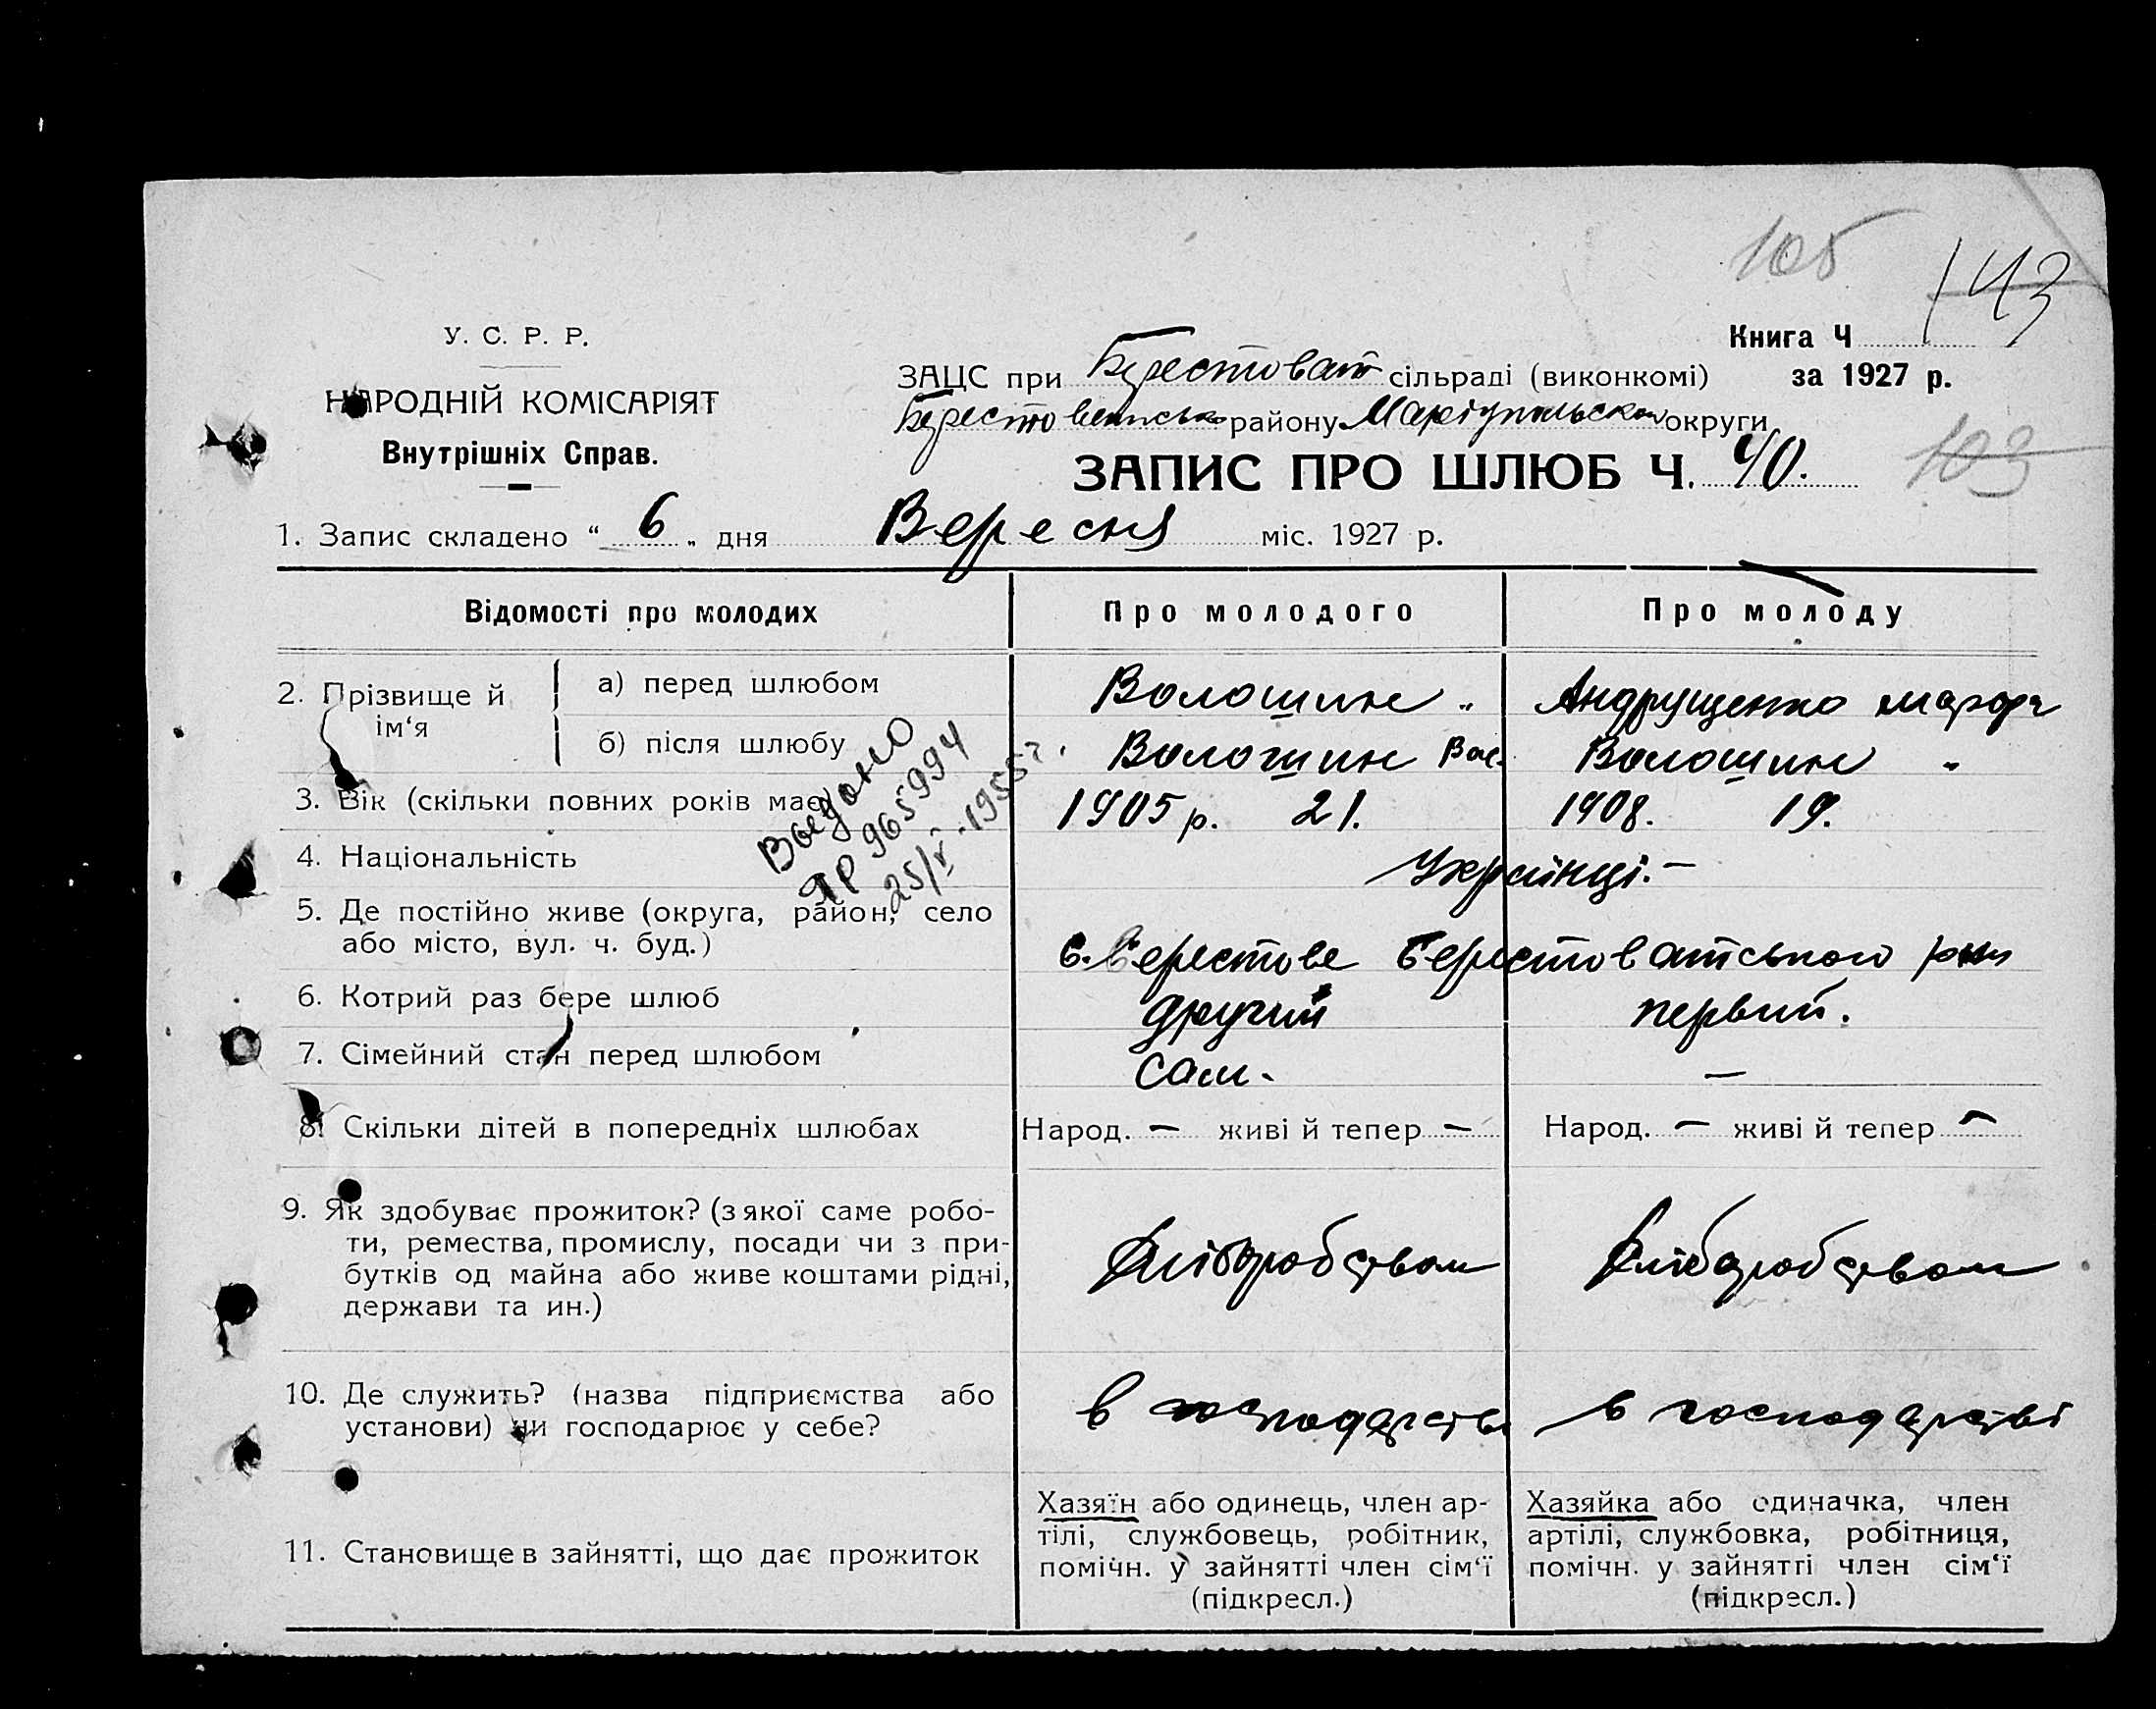 105
143
У. С. Р. Р.
НАРОДНІЙ КОМІСАРІЯТ
Внутрішніх Справ.
Книга Ч
ЗАЦС при Берестоват сільраді (виконкомі) за 1927 р.
району Маріупольської округи
103
ЗАПИС ПРО ШЛЮБ Ч. 40.
1. Запис складено “ 6 „ дня Вересня міс. 1927 р.
Відомості про молодих Про молодого Про молоду
2. Прізвище й ім‘я
а) перед шлюбом Волошин „ Андрущенко
б) після шлюбу Волошин Вас. Волошин „
3. Вік (скільки повних років має) 1905 р. 21. 1908. 19.
Выдано
ЯР 965994
25/V-1955г.
4. Національність Українці. —
5. Де постійно живе (округа, район, село
або місто, вул. ч. буд.) с. Берестове Берестоватського р-ну
6. Котрий раз бере шлюб другий первий.
7. Сімейний стан перед шлюбом сам. —
8. Скільки дітей в попередніх шлюбах Народ. — живі й тепер — Народ. — живі й тепер —
9. Як здобуває прожиток? (з якої саме робо-
ти, ремества, промислу, посади чи з при-
бутків од майна або живе коштами рідні,
держави та ин.)
Хліборобством Хліборобством
10. Де служить? (назва підприємства або
установи) чи господарює у себе?
в господарстві в господарстві
11. Становище в зайнятті, що дає прожиток
Хазяїн або одинець, член ар-
тілі, службовець, робітник,
помічн. у зайнятті член сім‘ї
(підкресл.)
Хазяйка або одиначка, член
артілі, службовка, робітниця,
помічн. у зайнятті член сім‘ї
(підкресл.)